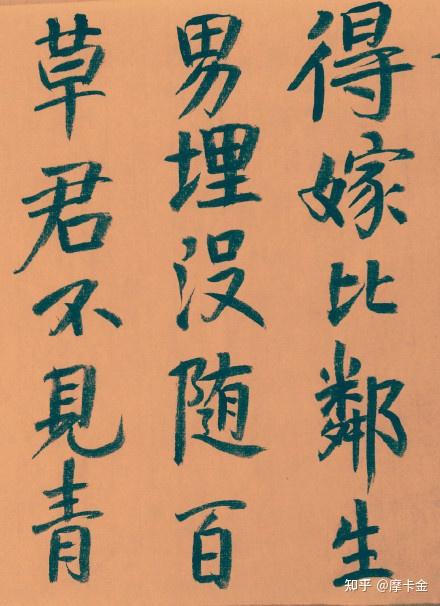 得嫁比鄰生
男埋没随百
草君不見青
知乎 @摩卡金